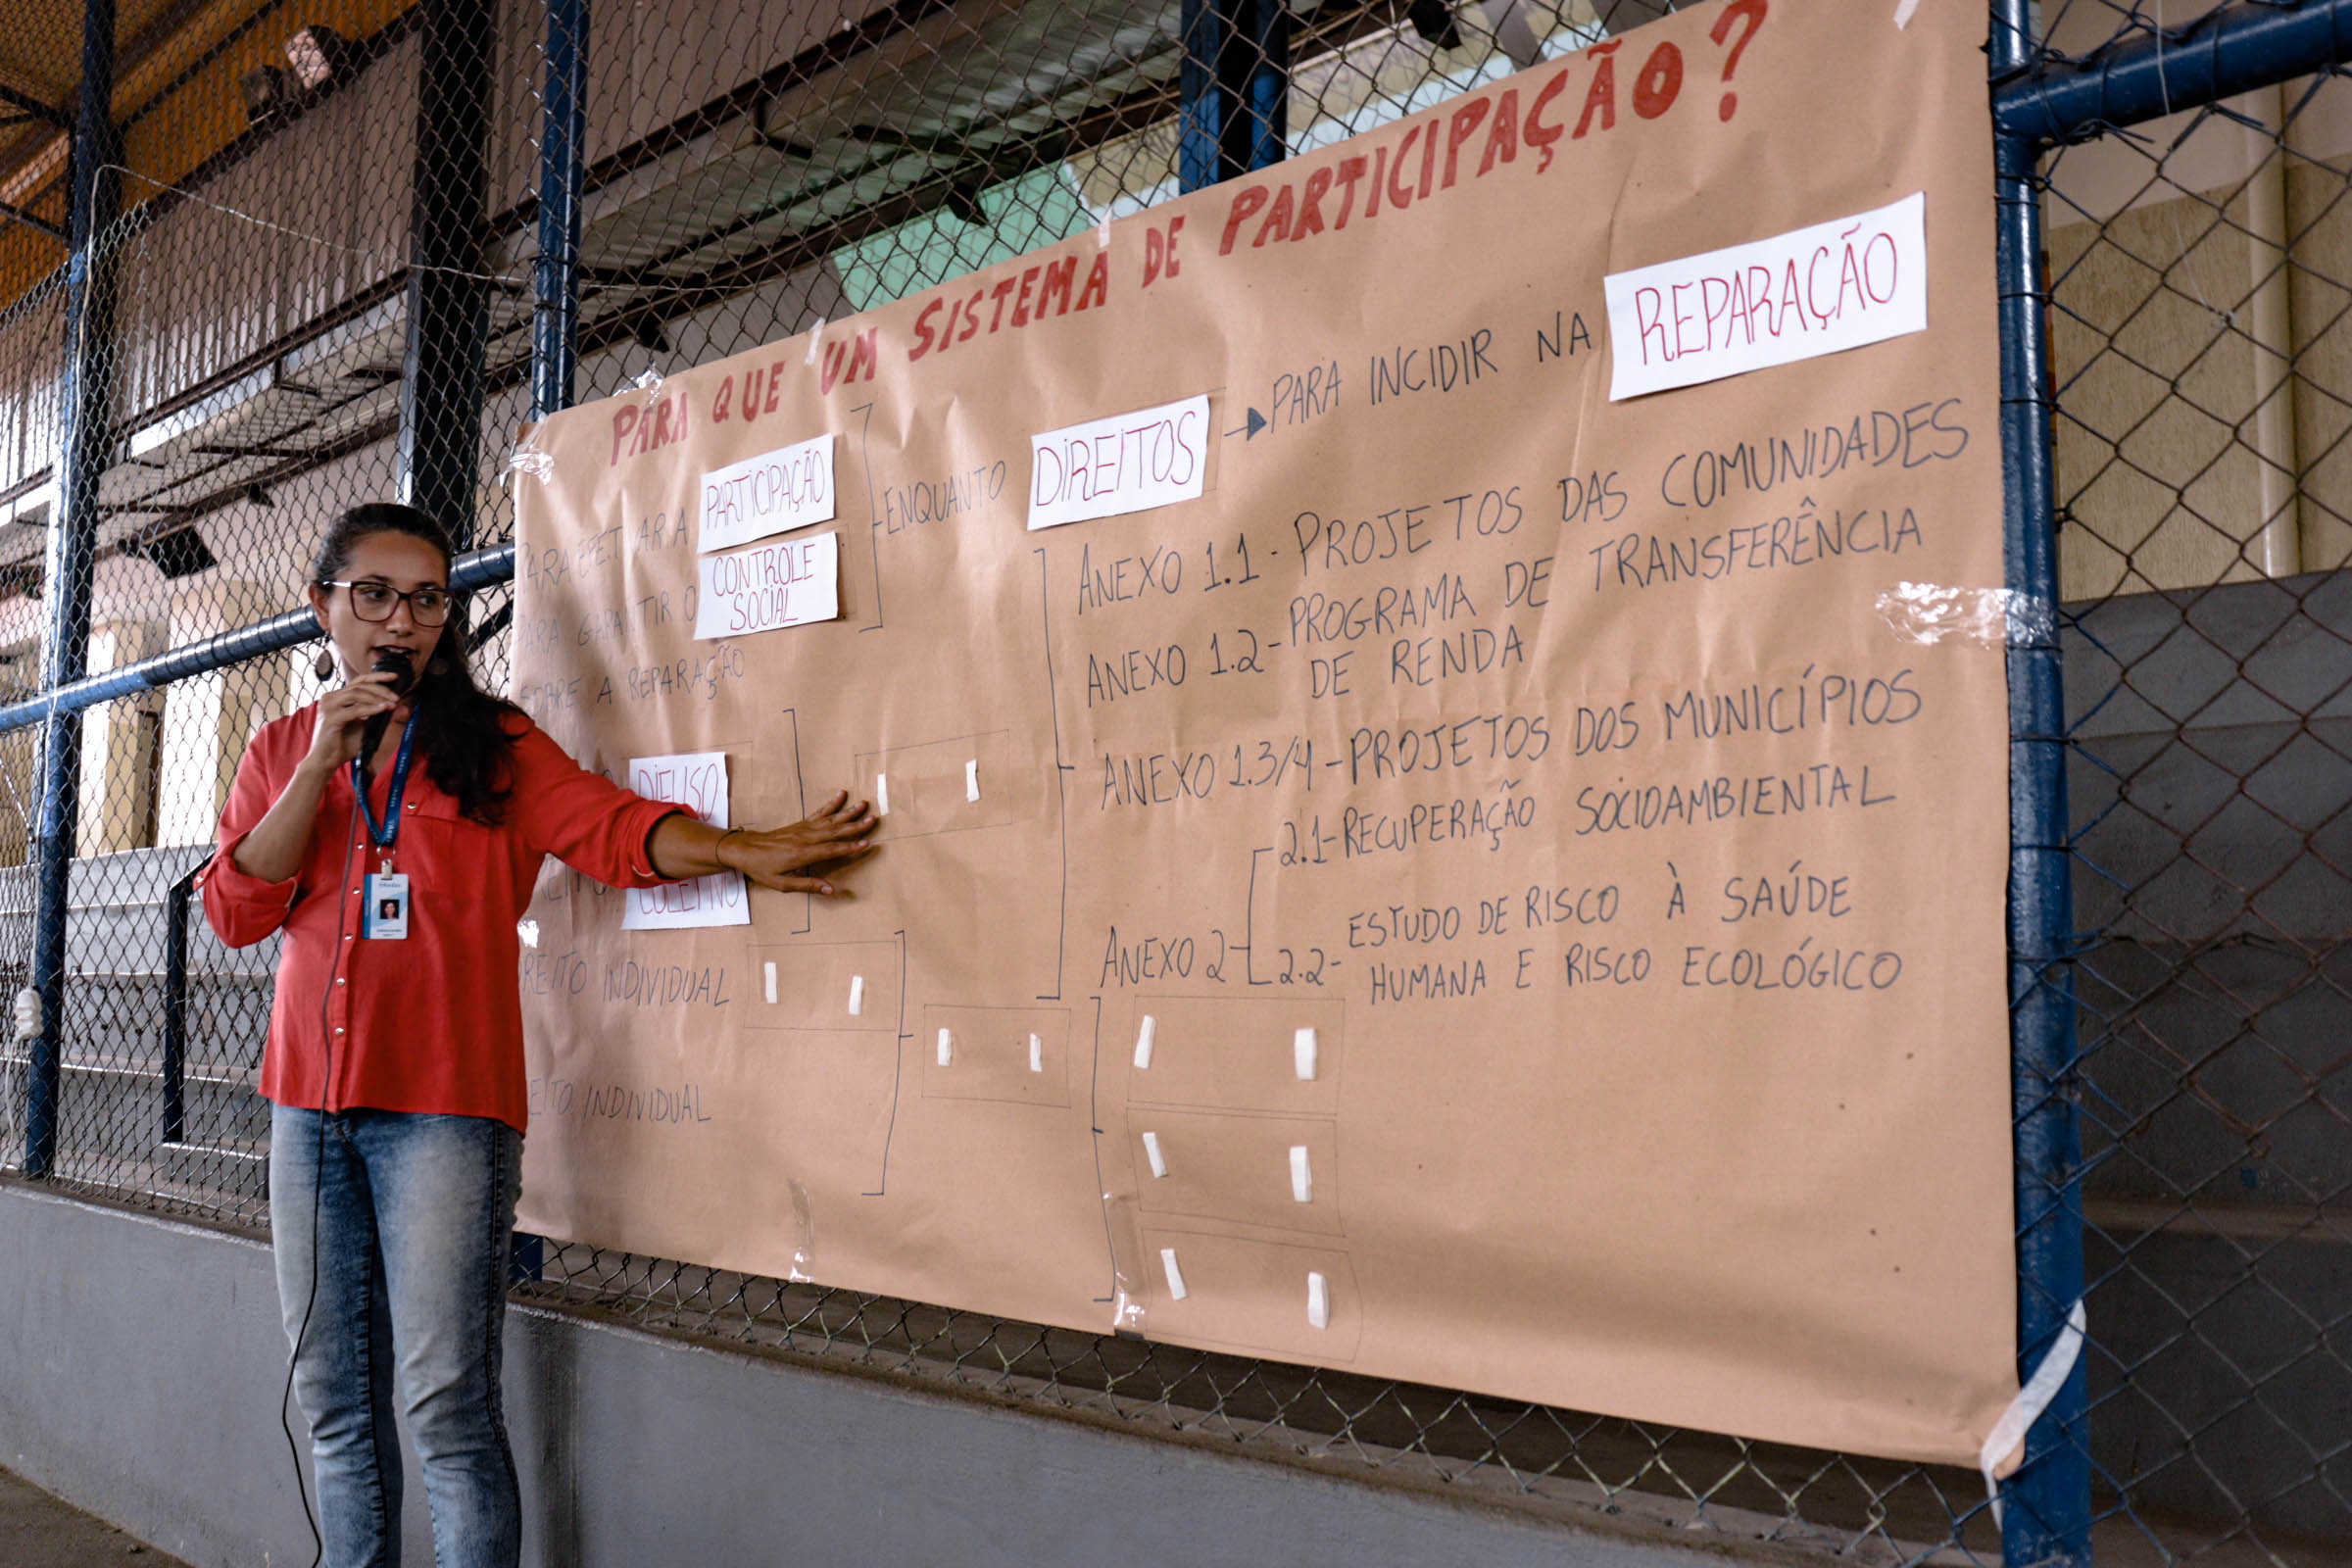 PARA QUE UM SISTEMA DE PARTICIPAÇÃO?
PARTICIPAÇÃO
CONTROLE
SOCIAL
SOBRE A REPARAÇÃO
ENQUANTO DIREITOS → PARA INCIDIR NA REPARAÇÃO
DIFUSO
COLETIVO
INDIVIDUAL
INDIVIDUAL
ANEXO 1.1 - PROJETOS DAS COMUNIDADES
ANEXO 1.2 - PROGRAMA DE TRANSFERÊNCIA
DE RENDA
ANEXO 1.3/4 - PROJETOS DOS MUNICÍPIOS
ANEXO 2
2.1 - RECUPERAÇÃO SOCIOAMBIENTAL
2.2 - ESTUDO DE RISCO À SAÚDE
HUMANA E RISCO ECOLÓGICO